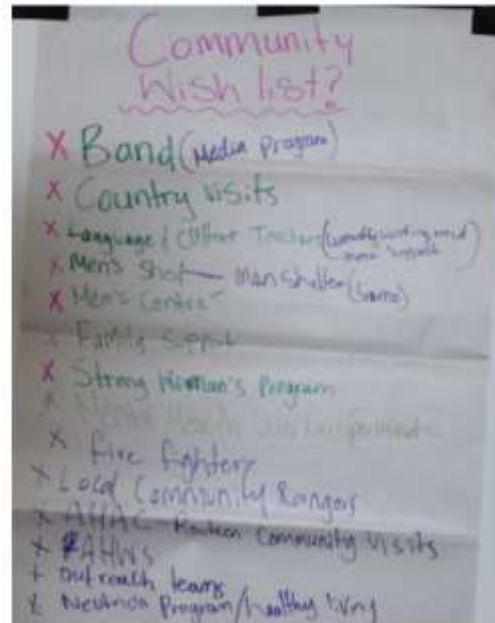 Community
Wish list?
X Band (Media Program)
X Country visits
X Language / Culture Teachers (
X Men's Shed — Man Shelter (Same)
X Men's Centre
Family Support
X Strong Woman's Program
Health
X fire fighters
X Local Community Rangers
X AHAC - Community Visits
X AHWs
+ outreach teams
X Program / healthy living